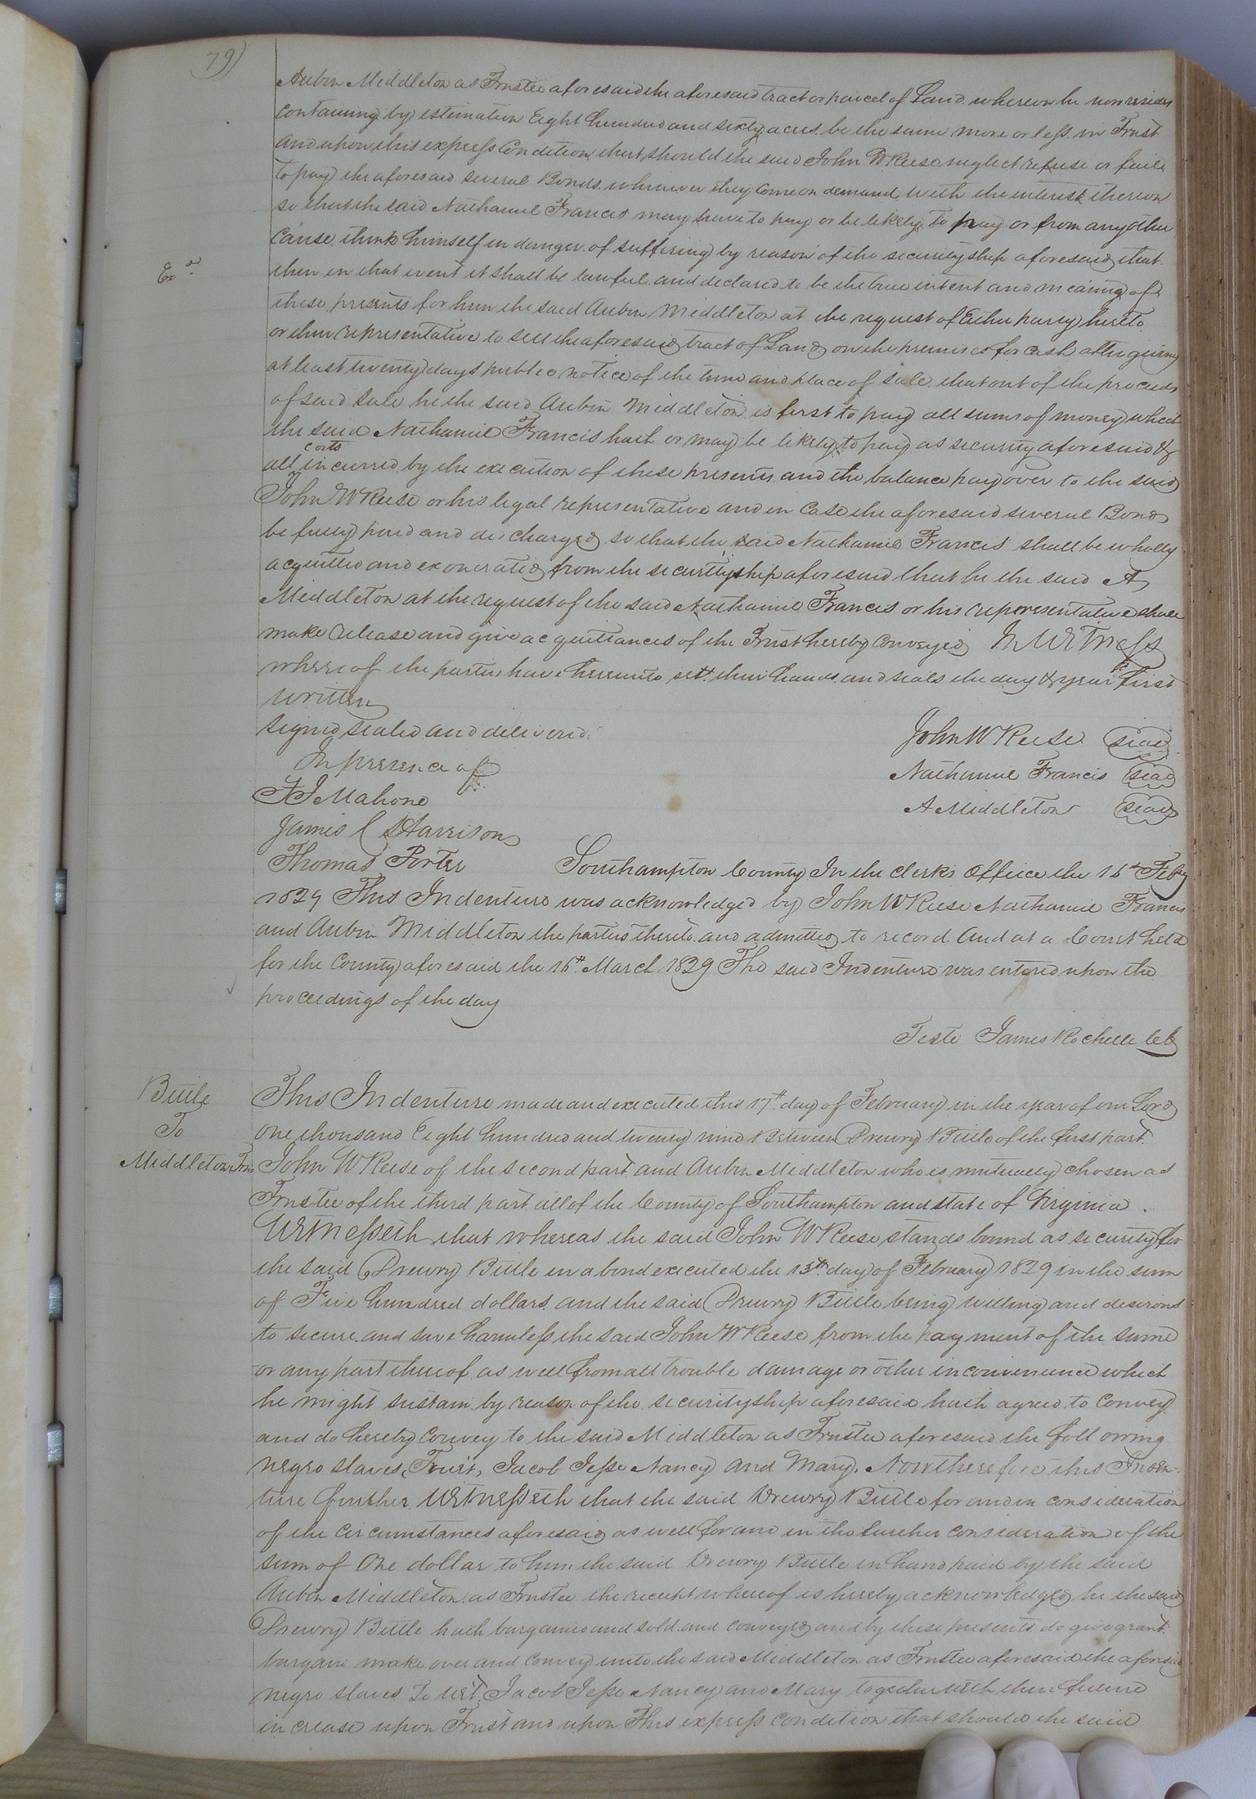 79)
Aubin Middleton as Trustee aforesaid the aforesaid tract or parcel of Land whereon he now resides
containing by estimation Eight hundred and sixty acres be the same more or less in Trust
and upon this express Condition that should the said John W Reese neglect refuse or faile
to pay the aforesaid several Bonds whenever they Come on demand with the interest thereon
so that the said Nathaniel Francis may have to pay or be likely to pay or from any other
Cause think himself in danger of suffering by reason of the securityship aforesaid that
Exd.
then in that event it shall be lawful and declared to be the true intent and meaning of
these presents for him the said Aubin Middleton at the request of Either party hereto
or their representative to sell the aforesaid tract of Land on the premises for cash after giving
at least twenty days public notice of the time and place of sale that out of the proceeds
of said sale he the said Aubin Middleton is first to pay all sums of money which
the said Nathaniel Francis hath or may be likely to pay as security aforesaid &
all costs incurred by the execution of these presents and the balance pay over to the said
John W Reese or his legal representative and in Case the aforesaid several Bonds
be fully paid and discharged so that the said Nathaniel Francis shall be wholly
acquitted and exonerated from the securityship aforesaid that he the said A
Middleton at the request of the said Nathaniel Francis or his representative shall
make release and give acquittances of the Trust hereby Conveyed In Witness
whereof the parties have hereunto sett their hands and seals the day & year first
written
Signed sealed and delivered
In presence of
John W Reese seal
Nathaniel Francis seal
A Middleton seal
J J Mahone
James C Harrison
Thomas Porter
Southampton County In the Clerks Office the 16th Feby
1829 This Indenture was acknowledged by John W Reese Nathaniel Francis
and Aubin Middleton the parties thereto and admitted to record And at a Court held
for the County aforesaid the 16th March 1829 The said Indenture was entered upon the
proceedings of the day
Teste James Rochelle ClK
Bittle
To
Middleton Trus
This Indenture made and executed this 17th day of February in the year of our Lord
One thousand Eight hundred and twenty nine Between Drewry Bittle of the first part
John W Reese of the second part and Aubin Middleton who is mutually chosen as
Trustee of the third part all of the County of Southampton and state of Virginia.
Witnesseth that whereas the said John W Reese stands bound as security for
the said Drewry Bittle in a bond executed the 13th day of February 1829 in the sum
of Five hundred dollars and the said Drewry Bittle being willing and desirous
to secure and save harmless the said John W Reese from the payment of the same
or any part thereof as well from all trouble damage or other inconvenience which
he might sustain by reason of the securityship aforesaid hath agreed to Convey
and do hereby Convey to the said Middleton as Trustee aforesaid the following
negro slaves, Towit, Jacob Jesse Nancy and Mary. Now therefore this Inden-
ture further Witnesseth that the said Drewry Bittle for and in consideration
of the Circumstances aforesaid as well for and in the further consideration of the
sum of One dollar to him the said Drewry Bittle in hand paid by the said
Aubin Middleton as Trustee the receipt whereof is hereby acknowledged he the said
Drewry Bittle hath bargained and sold and conveyed and by these presents do give grant
bargain make over and Convey unto the said Middleton as Trustee aforesaid the aforesaid
negro slaves To wit, Jacob Jesse Nancy and Mary together with their future
increase upon Trust and upon This express condition that should the said